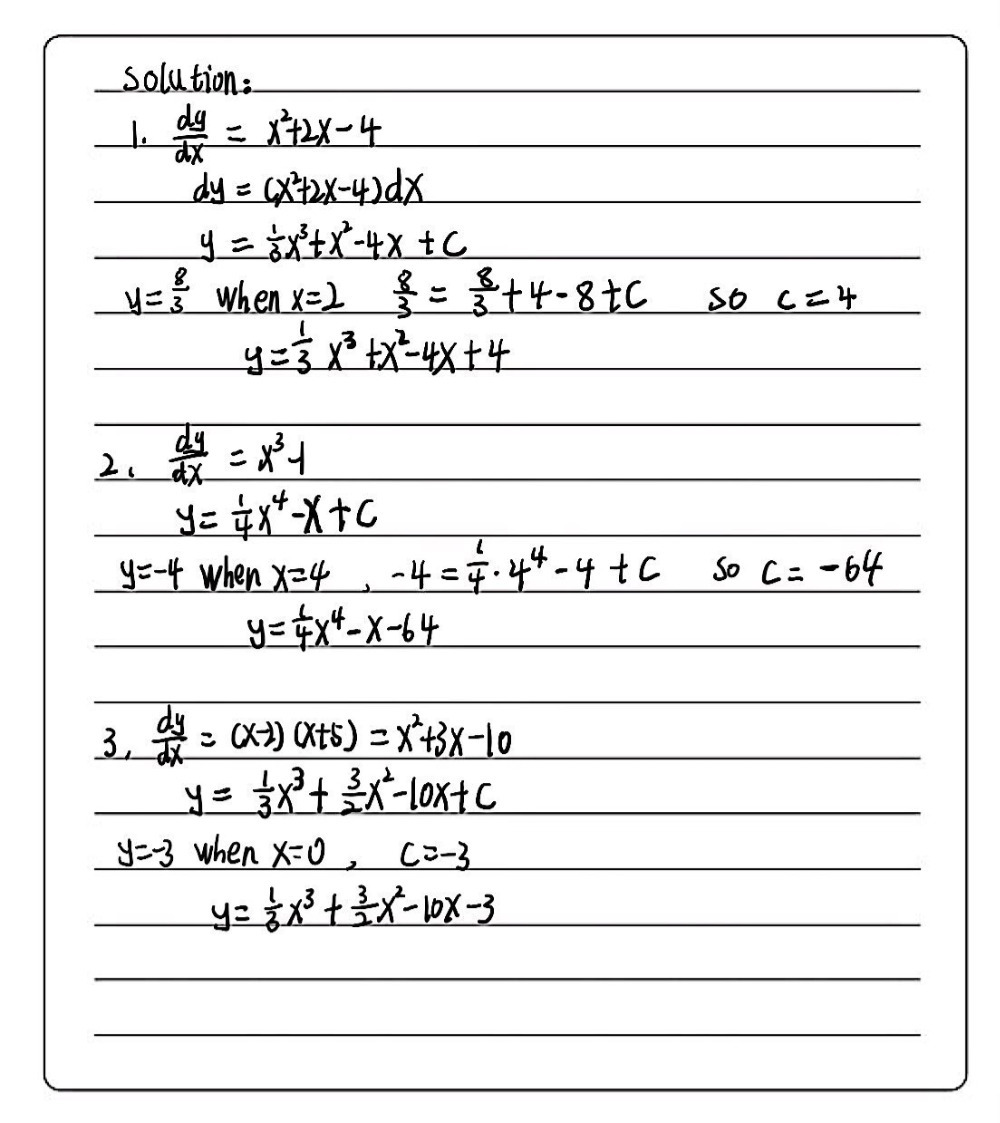 Solution:
1. dy/dx = x²+2x-4
dy = (x²+2x-4)dx
y = 1/3x³+x²-4x+C
y=8/3 when x=2 8/3 = 8/3+4-8+C so c=4
y=1/3 x³+x²-4x+4
2. dy/dx = x³-1
y= 1/4x⁴-x+C
y=-4 when x=4, -4=1/4·4⁴-4+C so C=-64
y=1/4x⁴-x-64
3. dy/dx = (x-2)(x+5)=x²+3x-10
y= 1/3x³+3/2x²-10x+C
y=-3 when x=0, C=-3
y=1/3x³+3/2x²-10x-3